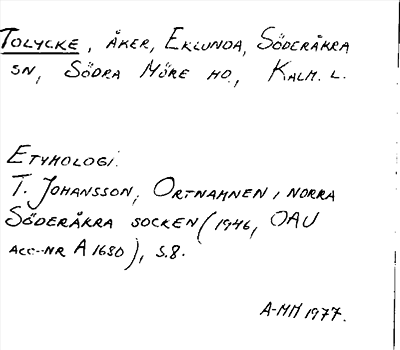 TOLYCKE, ÅKER, EKLUNDA, SÖDERÅKRA
SN, SÖDRA MÖRE HD., KALM. L.
ETYMOLOGI:
T. JOHANSSON, ORTNAMNEN I NORRA
SÖDERÅKRA SOCKEN (1946, OAU
ACC-NR A 1680), S.8.
A-MH 1977.